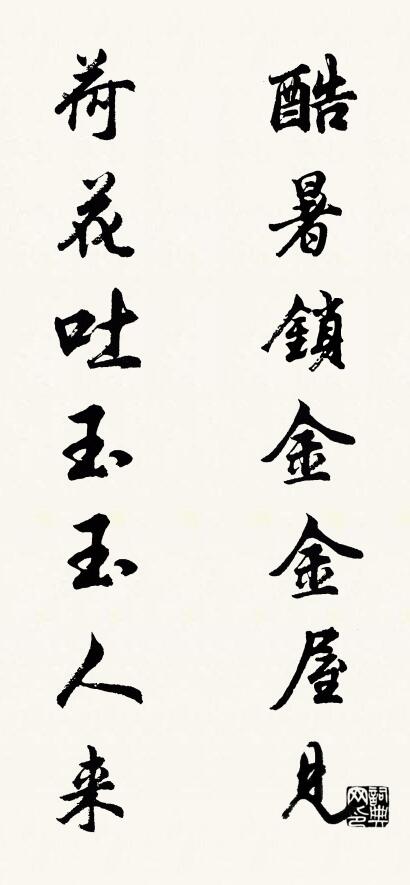 酷暑鎖金金屋見
荷花吐玉玉人来
詞典网印